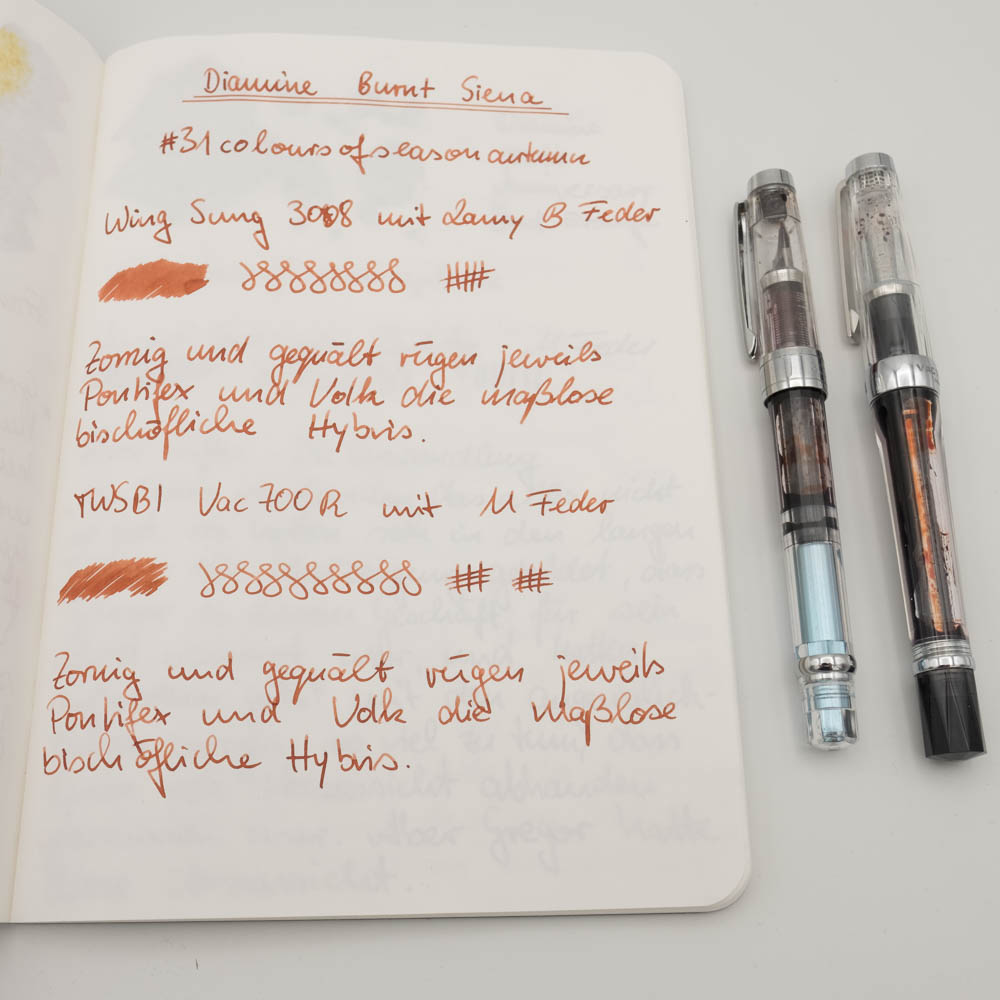 Diamine Burnt Siena
#31coloursofseasonautumn
Wing Sung 3008 mit Lamy B Feder
Zornig und gequält rügen jeweils
Pontifex und Volk die maßlose
bischöfliche Hybris.
TWSBI Vac 700R mit M Feder
Zornig und gequält rügen jeweils
Pontifex und Volk die maßlose
bischöfliche Hybris.